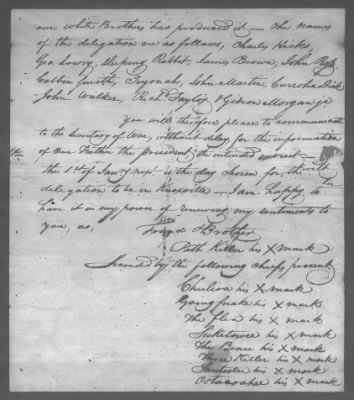 our white Brothers has produced it — The names
of the delegation are as follows, Charles Hicks,
Geo. Lowry, Sleeping Rabbit, James Brown, John Ross
Cabbin Smith, John Martin, Currohe Dick
John Walker, Richd Taylor & Gideon Morgan Jr
You will therefore please to communicate
to the Secretary of War, without delay, for the information
of our Father the President, the intended visit —
the 1st of Jany next is the day chosen for the
delegation to be in Knoxville — I am happy to
have it in my power of renewing my sentiments to
you, as, Friend & Brother
Path Killer his X mark
Seconded by the following chiefs present
Chulioa his X mark
Going Snake his X mark
The Flea his X mark
his X mark
The Bear his X mark
Three Killer his X mark
his X mark
his X mark